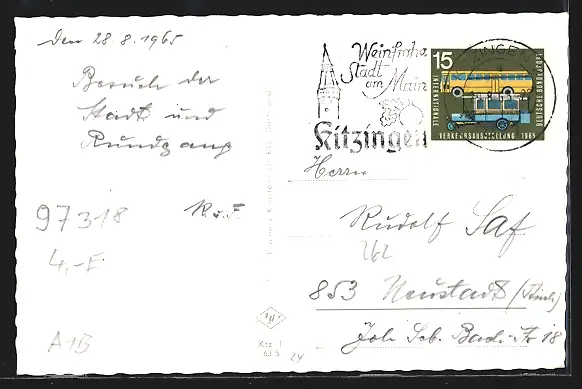 Den 28.8.1965
Besuch der
Stadt und
Rundgang
R. u. F.
97318
4,-F
A1B
Weinfrohe
Stadt
am Main
Kitzingen
15
INTERNATIONALE
VERKEHRSAUSSTELLUNG 1965
DEUTSCHE BUNDESPOST
Herrn
Rudolf Saf
262
853 Neustadt (Aisch)
Joh. Seb. Bach-Str. 18
Ktz 1
63 5
24